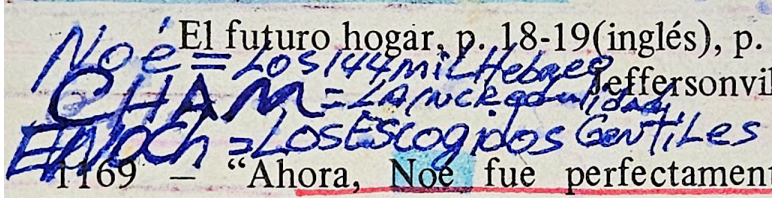 El futuro hogar, p. 18-19(inglés), p.
Noé = Los 144 mil Hebreo
Jeffersonvil
CHAM = La incredulidad
ENOCh = Los Escogidos Gentiles
1169 – “Ahora, Noé fue perfectament